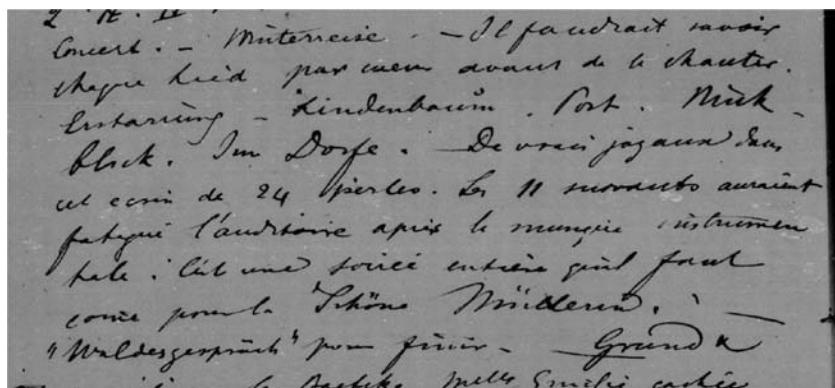 Concert. – Winterreise. – Il faudrait savoir
chaque Lied par cœur avant de le chanter.
Erstarrung – Lindenbaum. Post. Rück-
blick. Im Dorfe. – De vrais joyaux dans
cet écrin de 24 perles. Les 11 suivants auraient
fatigué l'auditoire après la musique instrumen
tale : C'est une soirée entière qu'il faut
comme pour la Schöne Müllerin. –
"Waldesgespräch" pour finir –
Melle Emilie